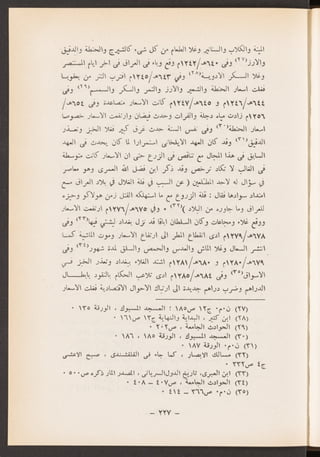 الميتة والكلاب والسنانير وغلا الطعام من كل شيء كالشيرج والحنطة والدقيق
والارز(٢٧) وفي ٦٤٠هـ/١٢٤٢م وقع وباء في العراق في آخر ايام المستنصر
وغلا السكر والادوية(٢٨) وفي ٦٤٣هـ/١٢٤٥م اقترب التتر من يعقوبا
ففقدت اسعار الحنطة والشعير والارز والتمر والسكر والسمسم(٢٩) وفي
٦٤٤هـ/١٢٤٦م و ٦٤٥هـ/١٢٤٧م كانت الاسعار متصاعدة وفي ٦٥٤هـ/
١٢٥٦م زادت مياه دجلة والفرات وحدث فيضان وارتفعت الاسعار خصوصا
اسعار الحنطة(٣٠) وفي نفس السنة حدث غرق كبير فغلا الخبز وتعذر
الدقيق(٣١) وقد كان العهد الايلخاني استمرارا لما كان يحدث في العهد
السابق في هذا المجال مع تناقص في الزرع حتى ان الاسعار كانت متوسطة
في الغالب لا تكاد ترخص وقد ذكر ابن فضل الله العمري وهو معاصر
في سؤال له لاحد المطلعين ( عن السبب في قلة الغلال في بلاد العراق مع
امتداد سوادها فقال : قلة الزروع مع ما استهلكه القتل زمن هولاكو وحيزه
للعراق وما جاوره من البلاد )(٣٢) • وفي ٦٧٥هـ/١٢٧٦م ارتفعت الاسعار
ووقع غلاء ومجاعات وكان السلطان اباقا قد نزل بغداد ليشتي فيها(٣٣) وفي
٦٧٨هـ/١٢٧٩م ادى انقطاع المطر الى ارتفاع الاسعار وموت الماشية كما
انتشر السعال وغلا الماش والعدس والحمص والسلق لمدة شهور(٣٤) وفي
٦٧٩هـ/١٢٨٠م و ٦٨٠هـ/١٢٨١م اشتد الغلاء ببغداد وتعذر الخبز في
الاسواق(٣٥) وفي ٦٨٤هـ/١٢٨٥م ادى تلاعب الحكام بالنقود بابطال
الدراهم وضرب دراهم جديدة الى ارتباك الاحوال الاقتصادية ففلت الاسعار
(٢٧) ن٠م٠ ج١٢ ص١٨٥ ؛ العسجد المسبوك ، الورقة ١٣٥ ٠
(٢٨) ابن كثير ، البداية والنهاية ج١٢ ص١٦١ ٠
(٢٩) الحوادث الجامعة ، ص٢٠٢ ٠
(٣٠) العسجد المسبوك ، الورقة ١٨٥ ، ١٨٦ ٠
(٣١) ن٠م٠ الورقة ١٨٧ ٠
(٣٢) مسالك الابصار ، كما جاء في القلقشندي ، صبح الاعشى
ج٤ ص٣٣٢ ٠
(٣٣) ابن العبري، تاريخ الدول السرياني ، المصدر المار ذكره ص٥٠٠ ٠
(٣٤) الحوادث الجامعة ، ص٤٠٧ – ٤٠٨ ٠
(٣٥) ن٠م٠ ص٣٦٦ – ٤١٤ ٠
– ٢٢٧ –